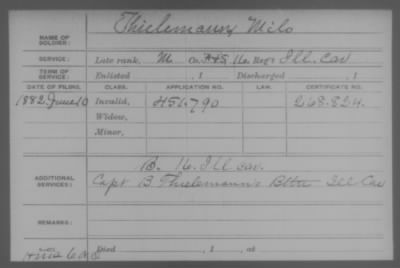 NAME OF SOLDIER: Thielemann, Milo
SERVICE: Late rank, M Co. F&S 16 Reg't Ill. Cav
TERM OF SERVICE: Enlisted , 1 Discharged , 1
DATE OF FILING. CLASS. APPLICATION NO. LAW. CERTIFICATE NO.
1882 June 10 Invalid, 451.790 268.824.
Widow,
Minor,
ADDITIONAL SERVICES: 16. Ill Cav.
Capt B Thielemann's Ill Cav
REMARKS:
Died , 1 , at